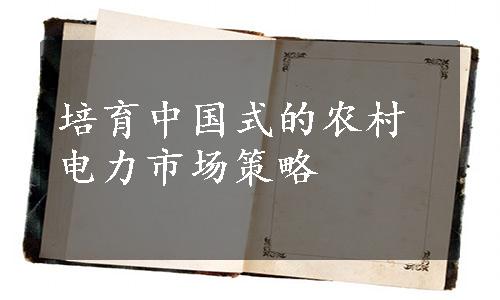 培育中国式的农村
电力市场策略